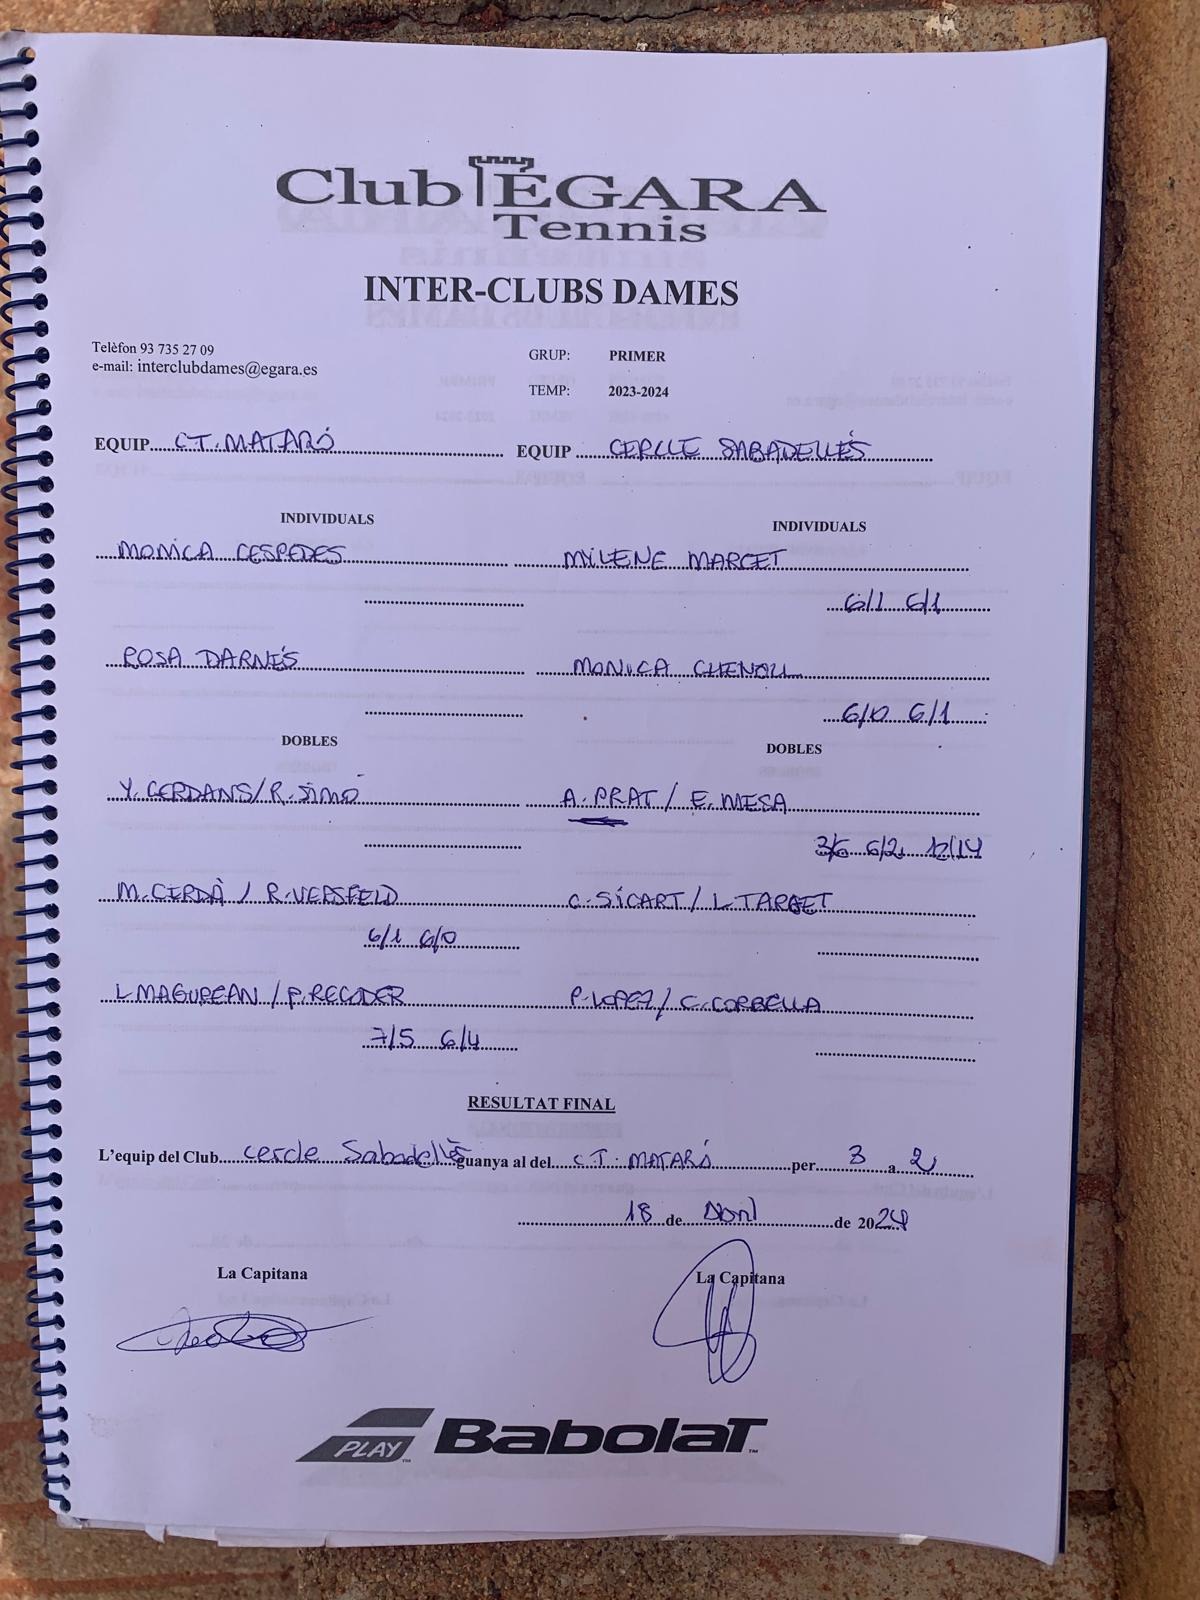 Club ÈGARA
Tennis
INTER-CLUBS DAMES
Telèfon 93 735 27 09
e-mail: interclubdames@egara.es
GRUP: PRIMER
TEMP: 2023-2024
EQUIP CT. MATARÓ EQUIP CERCLE SABADELLÉS
INDIVIDUALS INDIVIDUALS
MONICA CESPEDES MYLENE MARCET
6/1 6/1
ROSA DARNÉS MONICA CHENOLL
6/0 6/1
DOBLES DOBLES
Y. CERDANS/R. SIMÓ A. PRAT / E. MESA
3/6 6/2 12/14
M. CERDÀ / R. VERSFELD C. SICART / L. TARGET
6/1 6/0
L. MAGUREAN / P. RECODER P. LOPEZ / C. CORBELLA
7/5 6/4
RESULTAT FINAL
L'equip del Club Cercle Sabadellès guanya al del C.T. MATARÓ per 3 a 2
18 de Abril de 2024
La Capitana La Capitana
PLAY Babolat